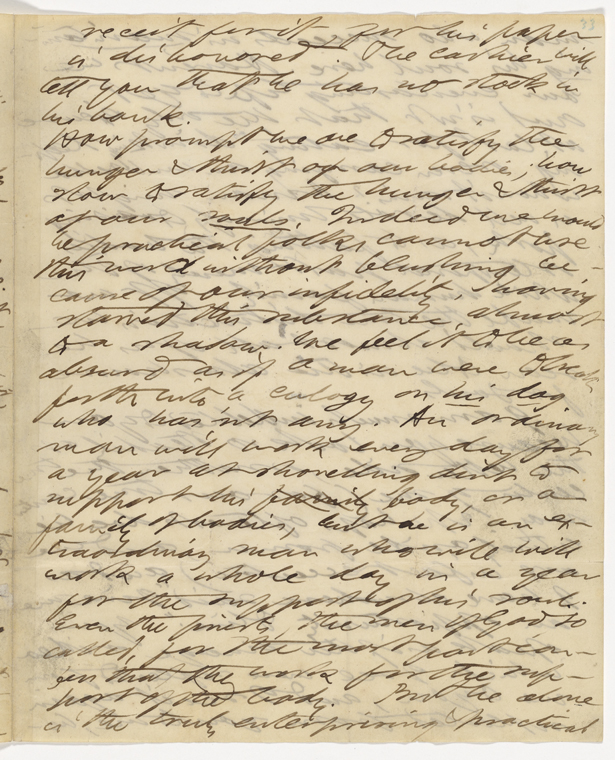 33
receit for it, for his paper
is dishonored. The cashier will
tell you that he has no stock in
his bank.
How prompt we are to satisfy the
hunger & thirst of our bodies; how
slow to satisfy the hunger & thirst
of our souls. Indeed we would
be practical folks cannot use
this word without blushing be-
cause of our infidelity, having
starved this substance almost
to a shadow. We feel it to be as
absurd as if a man were to break
forth into a eulogy on his dog
who has'nt any. An ordinary
man will work every day for
a year at shovelling dirt to
support his family body, or a
family of bodies, but he is an ex-
traordinary man who will will
work a whole day in a year
for the support of his soul.
Even the priests, the men of God so
called, for the most part con-
fess that they work for the sup-
port of the body. But he alone
is the truly enterprising & practical